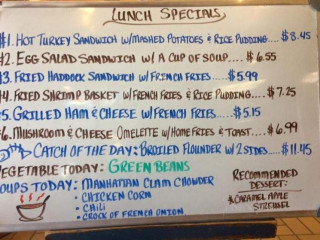 LUNCH SPECIALS
#1. HOT TURKEY SANDWICH W/MASHED POTATOES & RICE PUDDING.... $8.45
#2. EGG SALAD SANDWICH W/ A CUP OF SOUP.... $6.55
#3. FRIED HADDOCK SANDWICH W/FRENCH FRIES.... $5.99
#4. FRIED SHRIMP BASKET W/FRENCH FRIES & RICE PUDDING.... $7.25
#5. GRILLED HAM & CHEESE W/FRENCH FRIES.... $5.15
#6. MUSHROOM & CHEESE OMELETTE W/HOME FRIES & TOAST.... $6.99
CATCH OF THE DAY: BROILED FLOUNDER W/ 2 SIDES.... $11.45
VEGETABLE TODAY: GREEN BEANS
SOUPS TODAY: MANHATTAN CLAM CHOWDER
• CHICKEN CORN
• CHILI
• CROCK OF FRENCH ONION
RECOMMENDED
DESSERT:
CARAMEL APPLE
STREUSEL